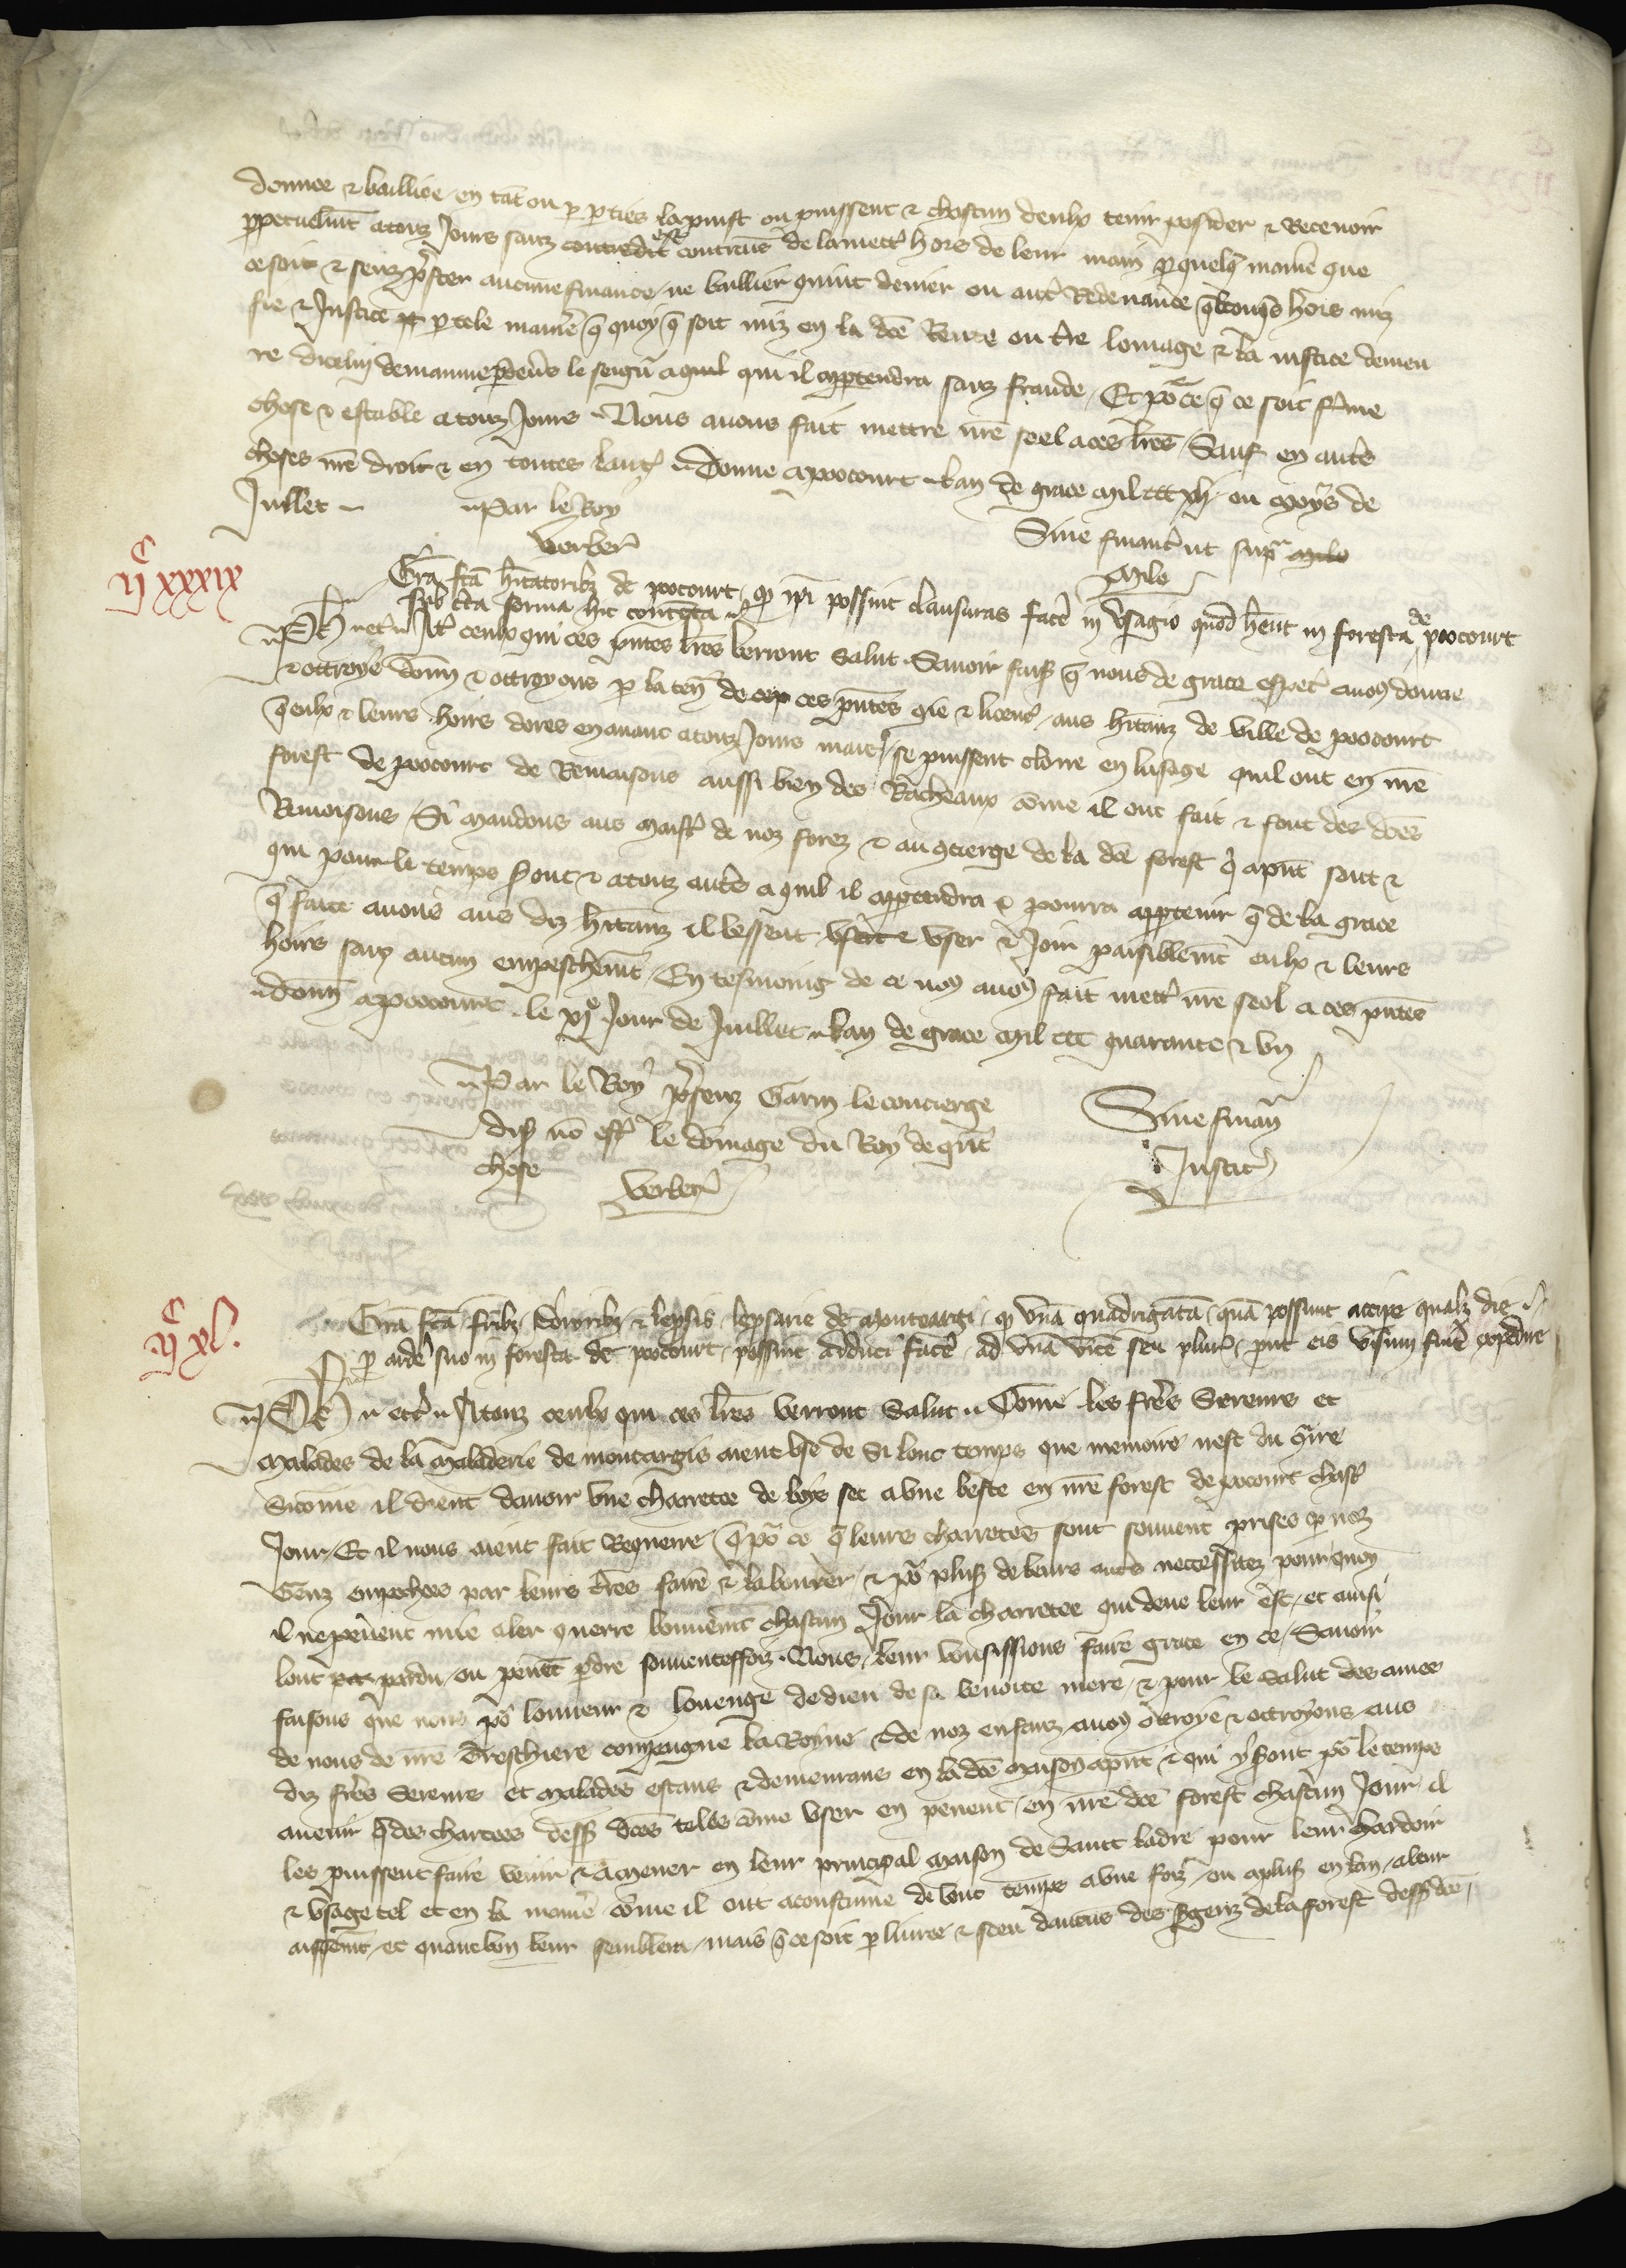 donnee & bailliee en tāt ou p pties la puist ou puissent & chascun deulx tenir posseder & Recevoir
ppetuelmt a touz Jours sanz contredit estre contrains de la mettre hors de leur main p quelq maniere que
ce soit & senz prester aucune finance ne baillier quint denier ou autre Redevance qlconqs hors mis
fie & Justice p tele maniere q quoy q soit mis en la dce Rente ou tre lomage & la justice demeu
re dicelui demainne pdevers le seignr a quil qui il appartendra sanz fraude. Et por ce q ce soit ferme
chose & estable a touz Jours Nous avons fait mettre nre seel a ces lres Sauf en autres
choses nre droit & en toutes lautrui. Donne a poocourt lan de grace Mil ccc xli ou moys de
Juillet
Par le Roy
Verber
Sine financia ut supra
Milo
ijc xxxix
Gra fca hitatoribz de poocourt q ipi possint clausuras facere in usagio quod hent in foresta de poocourt
sub certa forma hic contenta
Ph etc A touz ceulx qui ces pntes lres verront Salut. Savoir faisons q nous de grace especial avons donne
& ottroye donnons & ottroyons p la teneur de ces pntes gie & licence aus hitanz de ville de poocourt
q eulx & leurs hoirs dores en avant a touz Jours mais se puissent clorre en lusage quil ont en nre
forest de poocourt de Remaisons aussi bien des Racheaux come il ont fait & font des dces
Remaisons. Si mandons aus maistres de noz forez & au concierge de la dce forest q a pnt sont &
qui pour le temps seront & a touz autres a quil il appartendra & pourra appartenir q de la grace
q faite avons aus diz hitanz il lessent user & Joir paisiblemt eulx & leurs
hoirs sanz aucun empeschemt. En tesmoing de ce nous avons fait mettre nre seel a ces pntes
Donne a poocourt le xje Jour de Juillet lan de grace Mil ccc quarante & un
Par le Roy presenz Garin le concierge
disant non estre le domage du Roy de grant
chose
Verber
Sine financia
Justice
ijc xl.
Gra fca fribz sororibz & leprosis leprosarie de Montargi q una quadrigata qua possunt accipe qualz die
p ardere suo in foresta de poocourt possint adduci facere ad una vice seu plures, put eis visum fuerit expedire
Ph etc A touz ceulx qui ces lres verront Salut. Come les freres Sereurs et
malades de la Maladerie de montargis aient use de si lonc temps que memoire nest du contraire
Sicome il dient davoir une charretee de boys sec a une beste en nre forest de poocourt chascun
Jour. Et il nous aient fait Requerre q por ce q leurs charretes sont souvent prises p noz
Genz empechees par leurs tres faire & labourer & por plusieurs de leurs autres necessitez pour quoy
il ne peuent mie aler querre bonnemt chascun Jour la charretee qui deue leur est, et ainsi
lont perdu ou peuent pdre souventeffoiz. Nous leur vousissions faire grace en ce. Savoir
faisons que nous por lonneur & louenge de dieu de sa benoite mere & pour le Salut des ames
de nous de nre treschiere compaigne la Royne & de noz enfanz avons ottroye & ottroyons aus
diz freres Sereurs et malades estans & demeurans en la dce maison a pnt & qui y seront por le temps
avenir q des chartees dessus dces teles come user en peuent en nre dce forest chascun Jour il
les puissent faire venir & amener en leur principal maison de Saint ladre pour leur hardoir
& usage tel et en la maniere come il ont acoustume de lonc temps a une foiz ou a plus en lan a leur
aissemt et quant bon leur semblera, mais q ce soit p livree & sceu daucuns des sergenz de la forest dessus dce